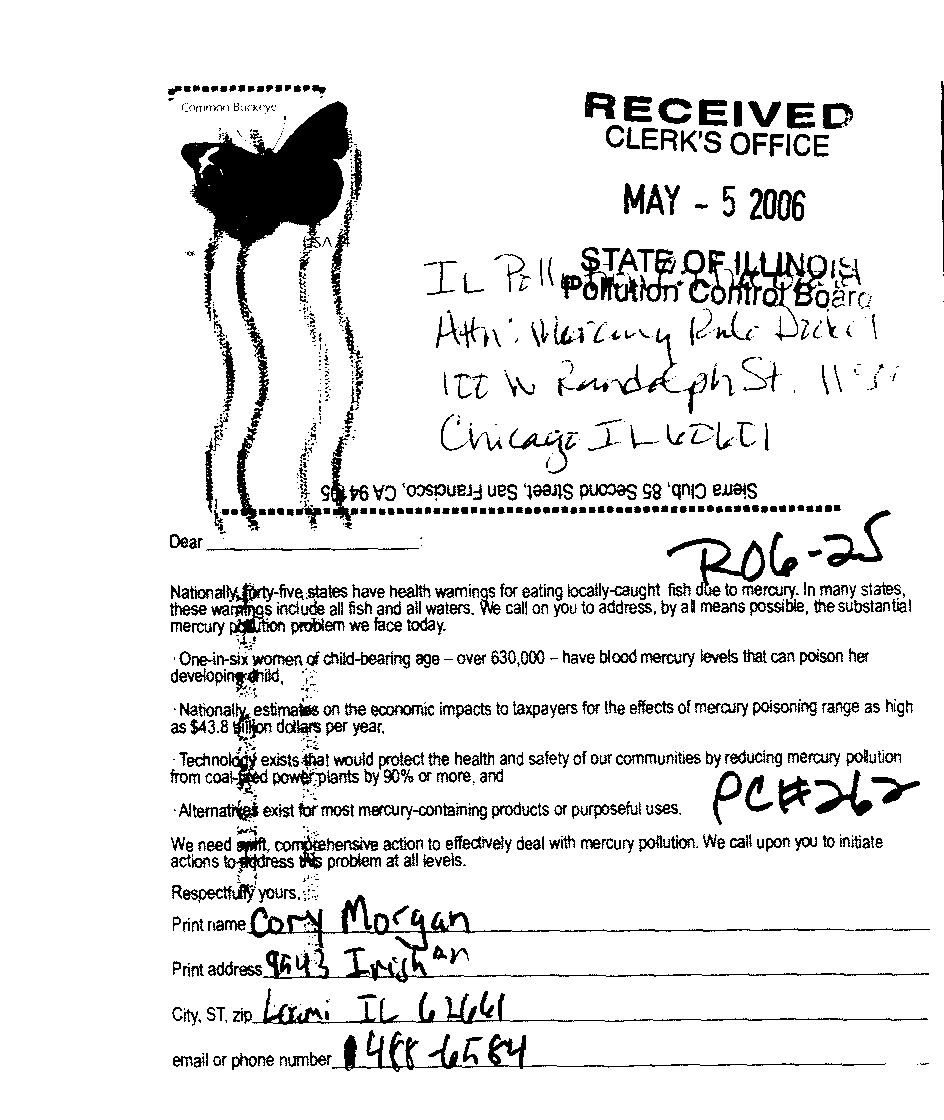 Common Buckeye
USA
RECEIVED
CLERK'S OFFICE
MAY - 5 2006
STATE OF ILLINOIS
Pollution Control Board
IL
Attn: Mercury Rule Docket
100 W Randolph St.
Chicago IL 60601
Sierra Club, 85 Second Street, San Francisco, CA 94105
Dear
R06-25
Nationally, forty-five states have health warnings for eating locally-caught fish due to mercury. In many states,
these warnings include all fish and all waters. We call on you to address, by all means possible, the substantial
mercury pollution problem we face today.
· One-in-six women of child-bearing age – over 630,000 – have blood mercury levels that can poison her
developing child,
· Nationally, estimates on the economic impacts to taxpayers for the effects of mercury poisoning range as high
as $43.8 billion dollars per year,
· Technology exists that would protect the health and safety of our communities by reducing mercury pollution
from coal-fired power plants by 90% or more, and
PC#262
· Alternatives exist for most mercury-containing products or purposeful uses.
We need swift, comprehensive action to effectively deal with mercury pollution. We call upon you to initiate
actions to address this problem at all levels.
Respectfully yours,
Print name Cory Morgan
Print address 9543 Irish
City, ST, zip Loami IL 62661
email or phone number 488-6584